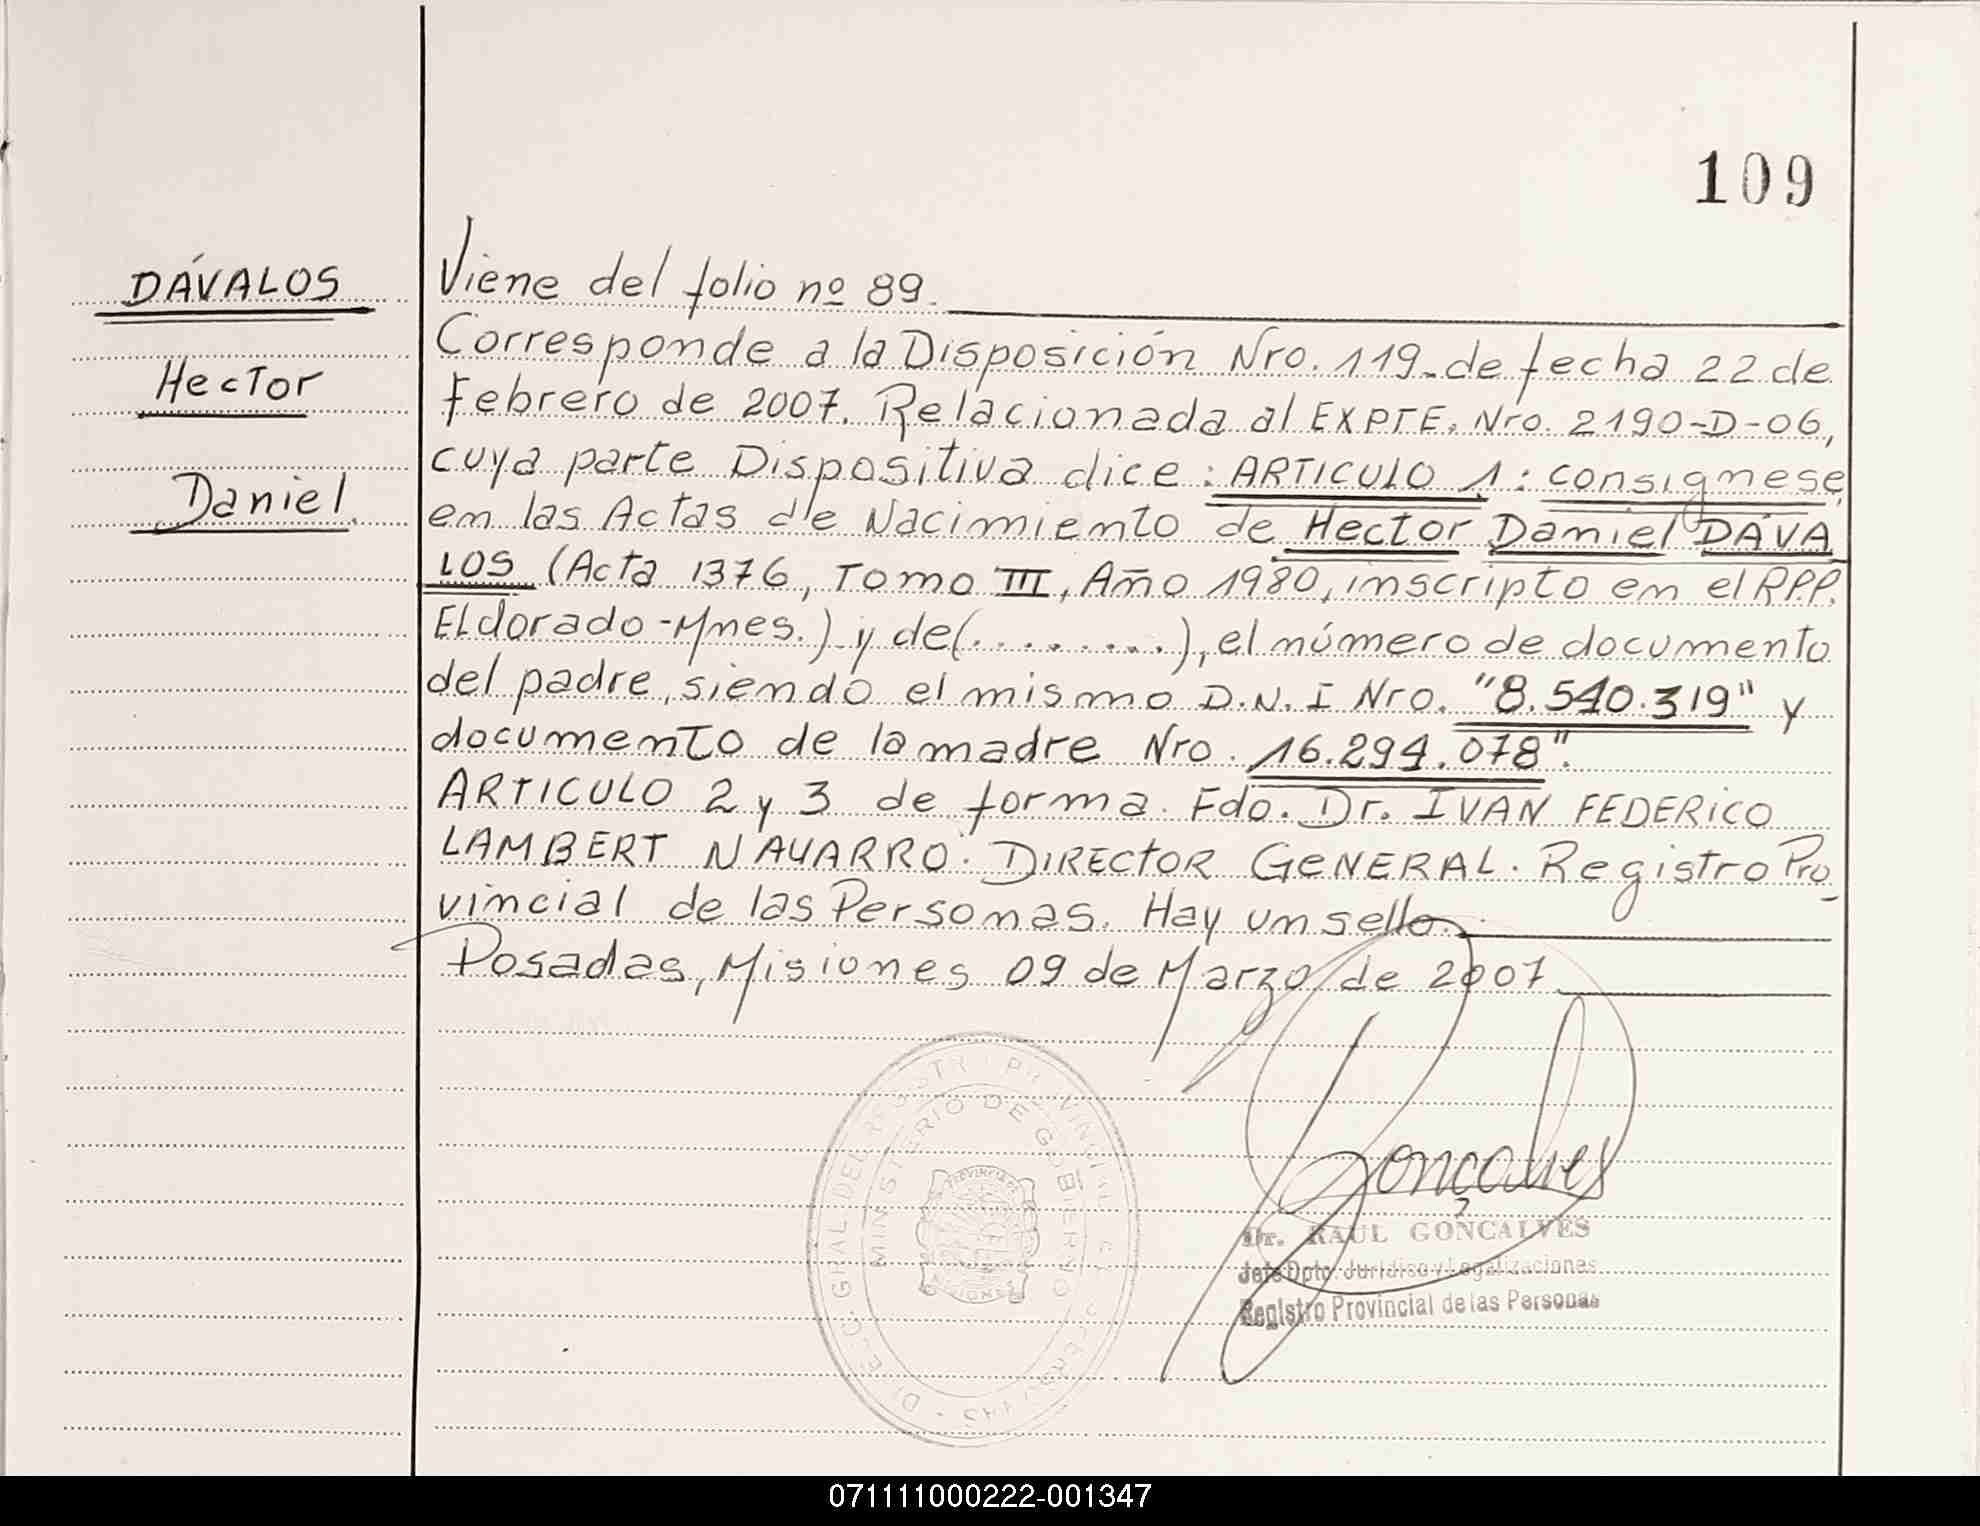 109
DÁVALOS
Hector
Daniel
Viene del folio nº 89.
Corresponde a la Disposición Nro. 119 de fecha 22 de
Febrero de 2007. Relacionada al EXPTE. Nro. 2190-D-06,
cuya parte Dispositiva dice: ARTICULO 1: consignese
en las Actas de Nacimiento de Hector Daniel DÁVA
LOS (Acta 1376, Tomo III, Año 1980, inscripto en el R.P.P.
Eldorado-Mnes.) y de(.........), el número de documento
del padre, siendo el mismo D.N.I Nro. "8.540.319" y
documento de la madre Nro. 16.294.078".
ARTICULO 2 y 3 de forma. Fdo. Dr. IVAN FEDERICO
LAMBERT NAVARRO. DIRECTOR GENERAL. Registro Pro_
vincial de las Personas. Hay un sello.
Posadas, Misiones 09 de Marzo de 2007
MINISTERIO DE GOBIERNO
PROVINCIA
MISIONES
Gonçalves
Dr. RAUL GONÇALVES
Jefe Dpto. Jurídico y Legalizaciones
Registro Provincial de las Personas
071111000222-001347